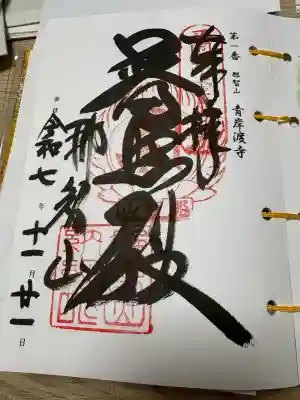 第一番 那智山 青岸渡寺
奉拝
普照殿
那智山
令和七年十一月廿一日